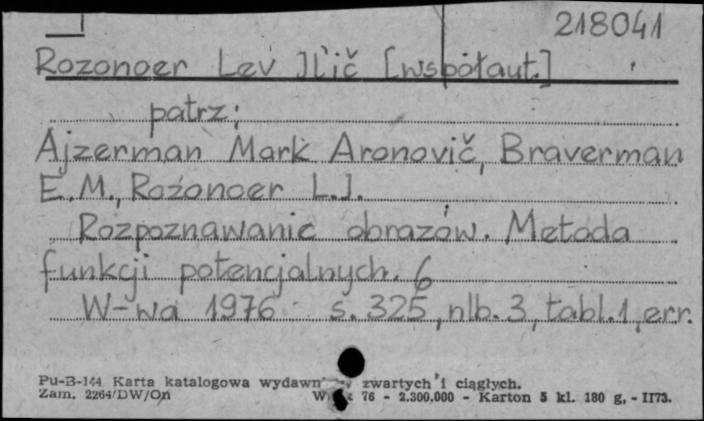 218041
Rozonoer Lev Il'ič [współaut.]
patrz:
Ajzerman Mark Aronovič, Braverman
E.M., Rozonoer L.I.
Rozpoznawanie obrazów. Metoda
funkcji potencjalnych. 6
W-wa 1976 s. 325, nlb. 3, tabl. 1, err.
Pu-B-144 Karta katalogowa wydawn zwartych i ciągłych.
Zam. 2264/DW/Oń 76 - 2.300,000 - Karton 5 kl. 180 g. - II73.